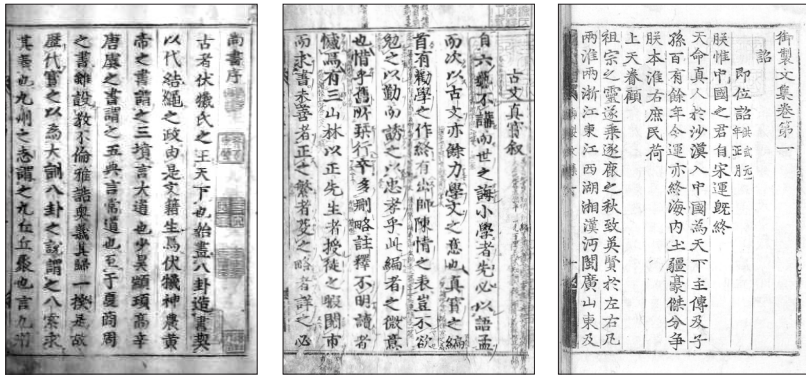 尚書序
古者伏犧氏之王天下也始畫八卦造書契
以代結繩之政由是文籍生焉伏犧神農黃
帝之書謂之三墳言大道也少昊顓頊高辛
唐虞之書謂之五典言常道也至于夏商周
之書雖設教不倫雅誥奧義其歸一揆是故
歷代寶之以爲大訓八卦之說謂之八索求
其義也九州之志謂之九丘丘聚也言九州
古文真寶叙
自六藝不講而世之誨小學者先必以語孟
而次以古文亦餘力學文之意也真寶之編
首有勸學之作終有出師陳情之表豈不欲
勉之以勤而誘之以忠孝乎此編者之微意
也惜乎舊所梓行率多刪略註釋不明讀者
憾焉有三山林以正先生者授徒之暇閱市
而求書未善者正之繁者芟之略者詳之必
御製文集卷第一
詔
即位詔 洪武元年正月
朕惟中國之君自宋運既終
天命真人於沙漠入中國為天下主傳及子
孫百有餘年今運亦終海內土疆豪傑分爭
朕本淮右庶民荷
上天眷顧
祖宗之靈遂乘逐鹿之秋致英賢於左右凡
兩淮兩浙江東江西湖湘漢沔閩廣山東及